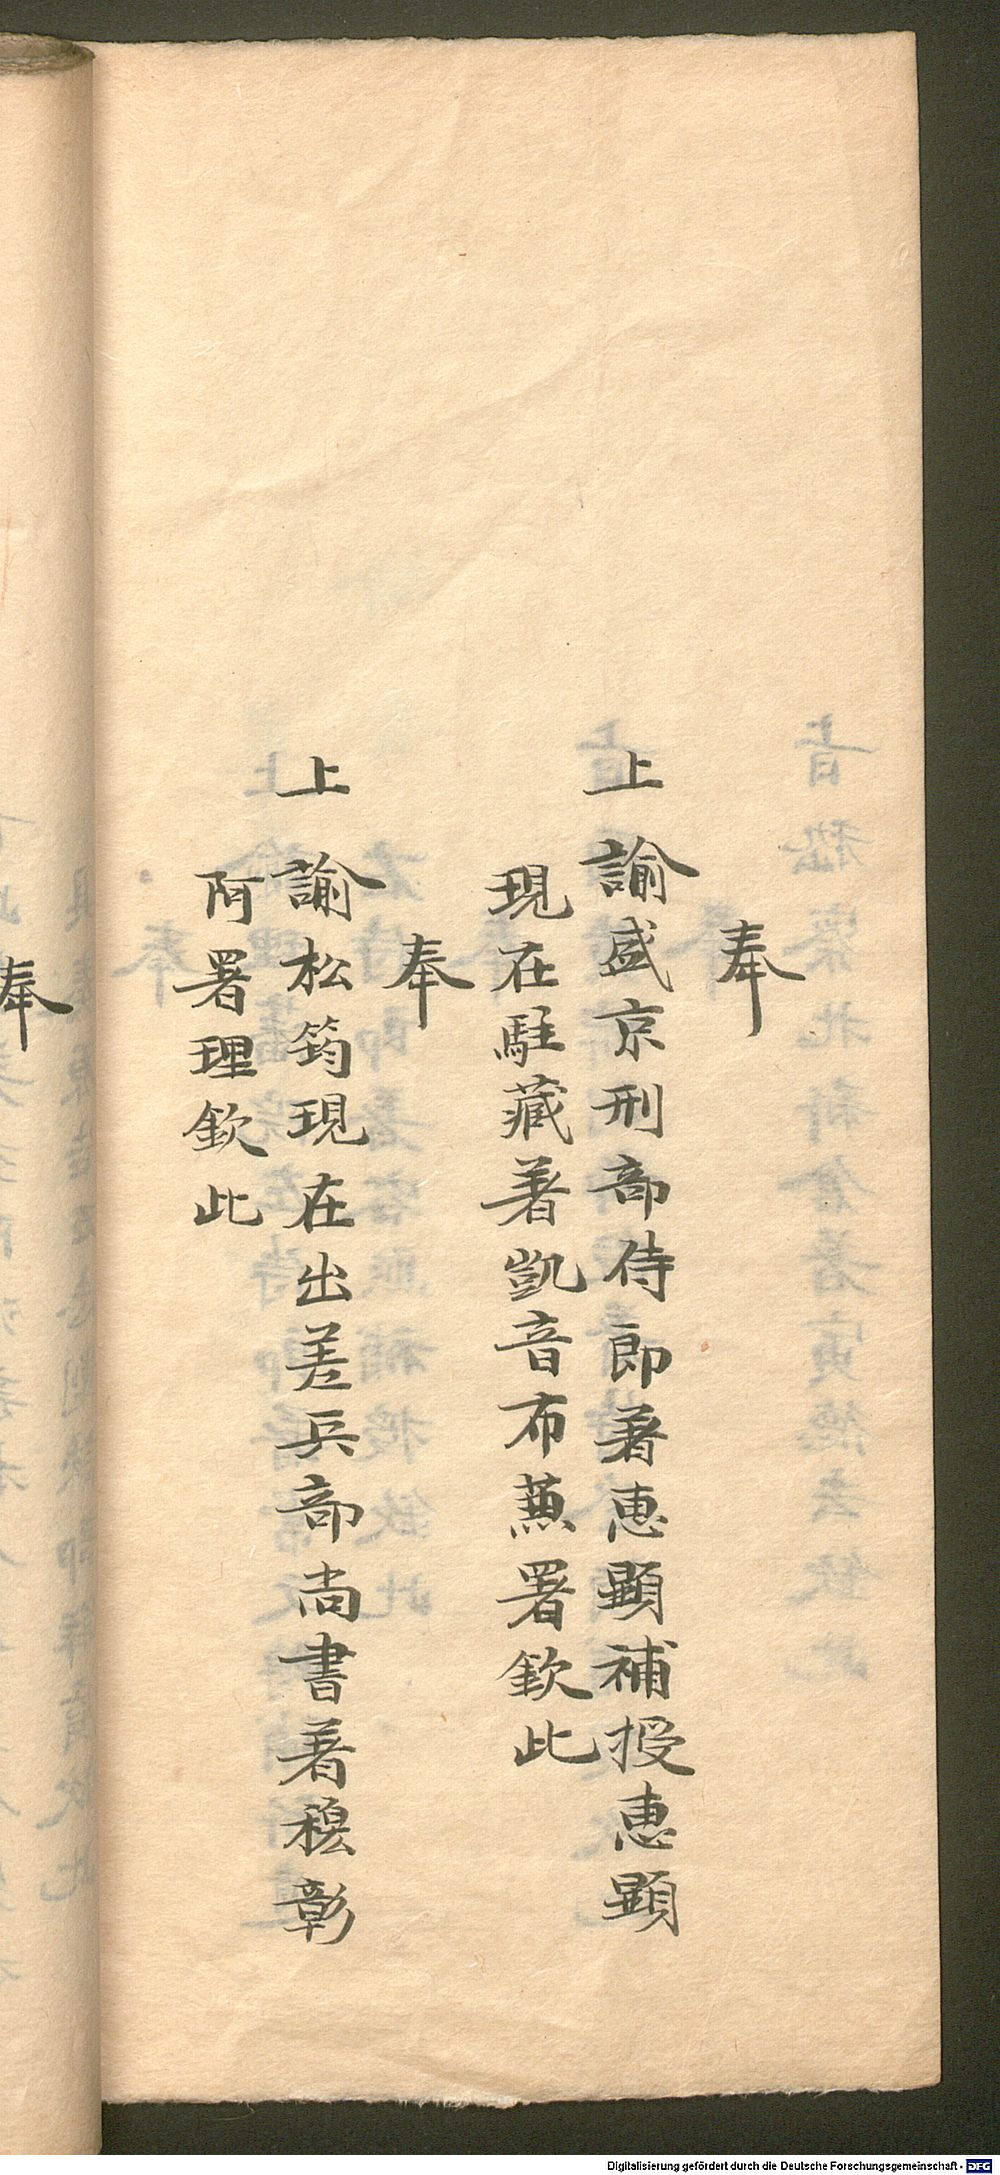 奉
上諭盛京刑部侍郎著惠顯補授惠顯
現在駐藏著凱音布蕉署欽此
奉
上諭松筠現在出差兵部尚書著穆彰
阿署理欽此
奉
Digitalisierung gefördert durch die Deutsche Forschungsgemeinschaft - DFG